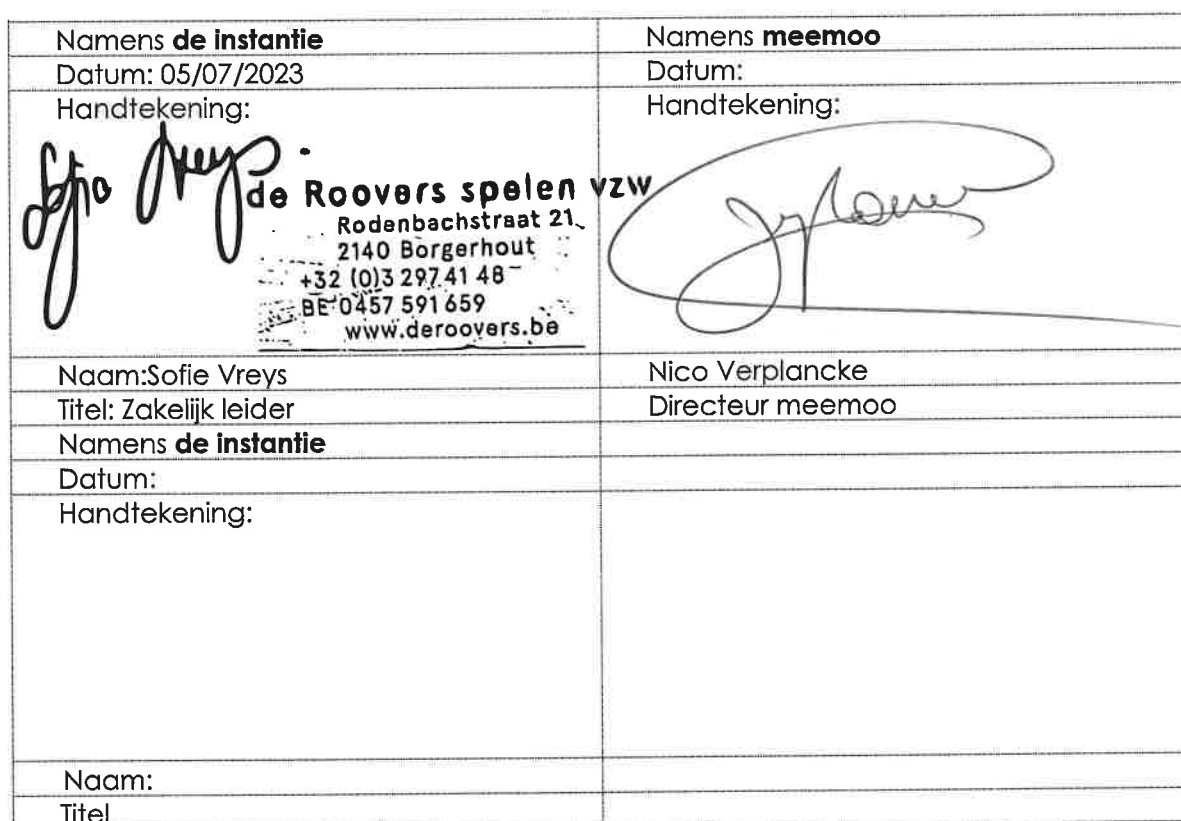 Namens de instantie
Namens meemoo
Datum: 05/07/2023
Datum:
Handtekening:
Handtekening:
Sofie Vreys
de Roovers spelen vzw
Rodenbachstraat 21
2140 Borgerhout
+32 (0)3 297 41 48
BE 0457 591 659
www.deroovers.be
Naam:Sofie Vreys
Nico Verplancke
Titel: Zakelijk leider
Directeur meemoo
Namens de instantie
Datum:
Handtekening:
Naam:
Titel